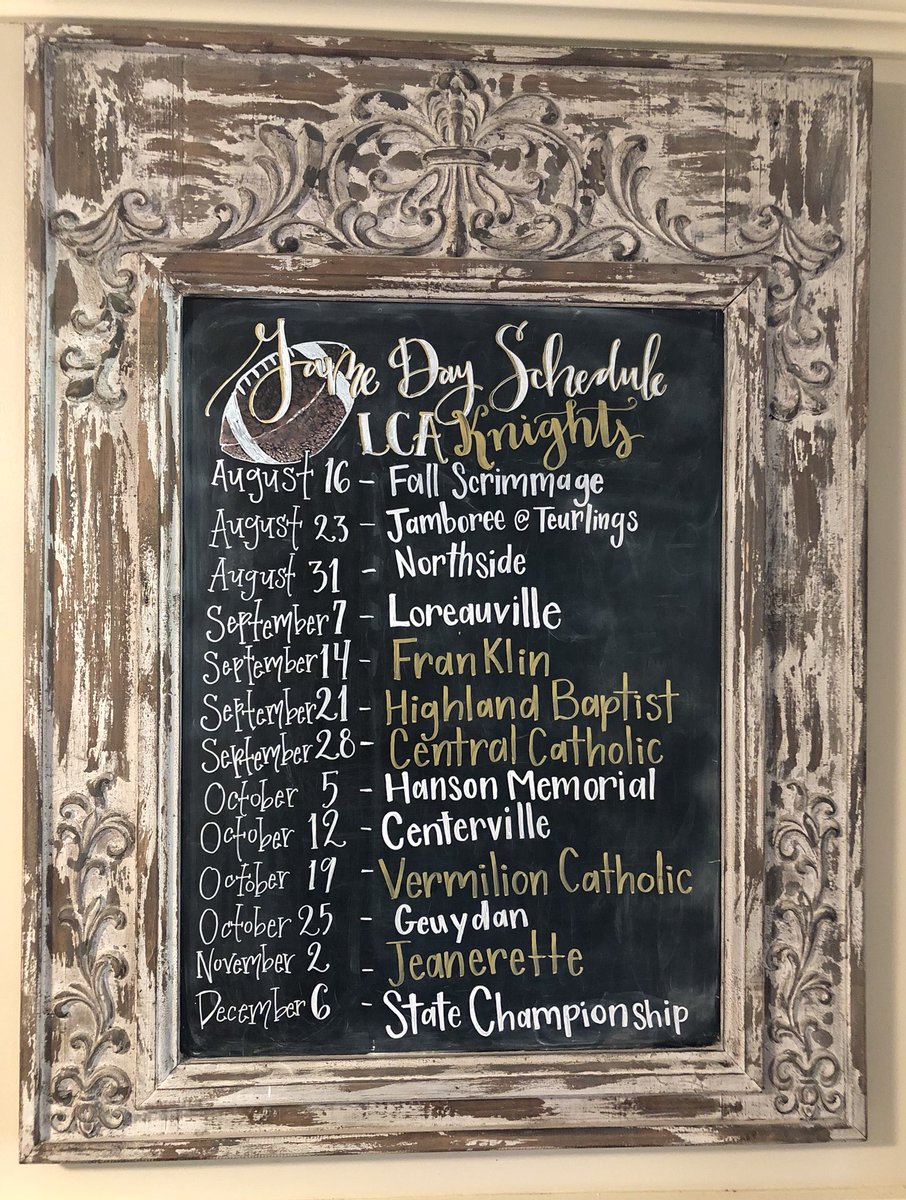 Game Day Schedule
LCA Knights
August 16 - Fall Scrimmage
August 23 - Jamboree @ Teurlings
August 31 - Northside
September 7 - Loreauville
September 14 - Franklin
September 21 - Highland Baptist
September 28 - Central Catholic
October 5 - Hanson Memorial
October 12 - Centerville
October 19 - Vermilion Catholic
October 25 - Geuydan
November 2 - Jeanerette
December 6 - State Championship